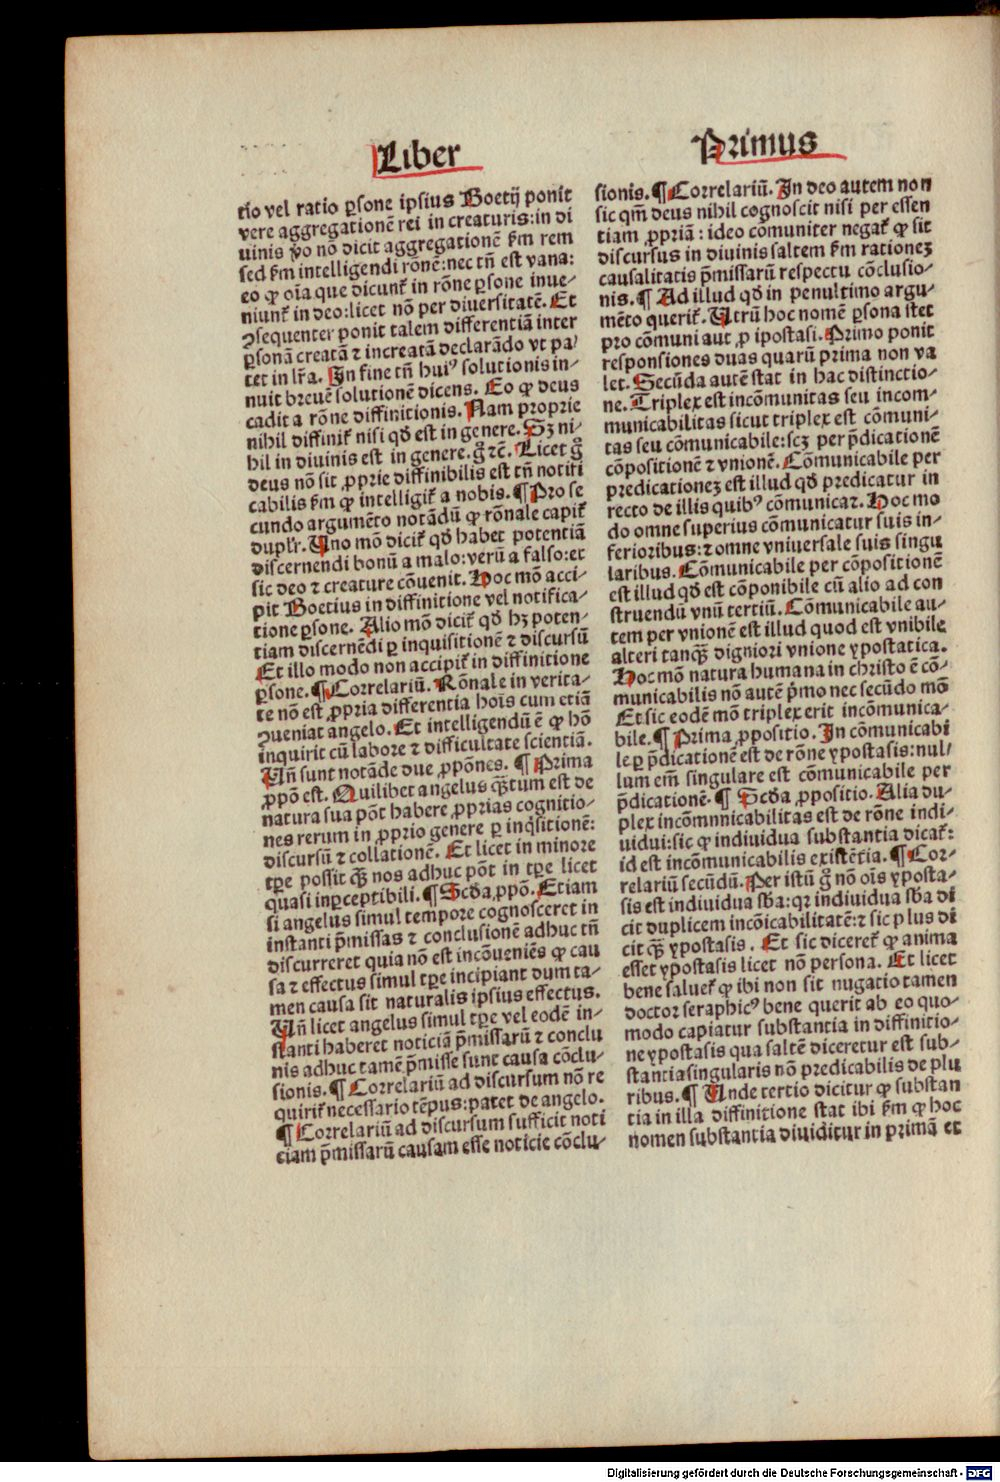 Liber
Primus
tio vel ratio ꝑsone ipsius Boetij ponit
vere aggregationē rei in creaturis: in di
uinis ꝟo nō dicit aggregationē ẜm rem
sed ẜm intelligendi rōnē: nec tñ est vana:
eo ꝙ oīa que dicunť in rōne ꝑsone inue⸗
niunť in deo: licet nō per diuersitatē. Et
ꝯsequenter ponit talem differentiā inter
ꝑsonā creatā ⁊ increatā declarādo vt pa⸗
tet in lr̄a. In fine tñ huiꝰ solutionis in⸗
nuit breuē solutionē dicens. Eo ꝙ deus
cadit a rōne diffinitionis. Nam proprie
nihil diffiniť nisi qḋ est in genere. Sꝫ ni⸗
hil in diuinis est in genere. gͦ ⁊cē. Licet gͦ
deus nō sit ꝓprie diffinibilis est tñ notifi
cabilis ẜm ꝙ intelligiť a nobis. ¶ Pro se
cundo argumēto notādū ꝙ rōnale capiť
duplr̄. Uno mō diciť qḋ habet potentiā
discernendi bonū a malo: verū a falso: et
sic deo ⁊ creature cōuenit. Hoc mō acci⸗
pit Boetius in diffinitione vel notifica⸗
tione ꝑsone. Alio mō diciť qḋ hꝫ poten⸗
tiam discernēdi ꝑ inquisitionē ⁊ discursū
Et illo modo non accipiť in diffinitione
ꝑsone. ¶ Correlariū. Rōnale in verita⸗
te nō est ꝓpria differentia hoīs cum etiā
ꝯueniat angelo. Et intelligendū ē ꝙ hō
inquirit cū labore ⁊ difficultate scientiā.
Uñ sunt notāde due ꝓpōnes. ¶ Prima
ꝓpō est. Quilibet angelus qꝫ̄tum est de
natura sua pōt habere ꝓprias cognitio⸗
nes rerum in ꝓprio genere ꝑ inq̇sitionē:
discursū ⁊ collationē. Et licet in minore
tꝑe possit qꝫ̄ nos adhuc pōt in tꝑe licet
quasi inꝑceptibili. ¶ Scḋa ꝓpō. Etiam
si angelus simul tempore cognosceret in
instanti p̄missas ⁊ conclusionē adhuc tñ
discurreret quia nō est incōueniēs ꝙ cau
sa ⁊ effectus simul tꝑe incipiant dum ta⸗
men causa sit naturalis ipsius effectus.
Uñ licet angelus simul tꝑe vel eodē in⸗
stanti haberet noticiā p̄missarū ⁊ conclu
nis adhuc tamē p̄misse sunt causa cōclu⸗
sionis. ¶ Correlariū ad discursum nō re
quiriť necessario tēpus: patet de angelo.
¶ Correlariū ad discursum sufficit noti
ciam p̄missarū causam esse noticie cōclu⸗
sionis. ¶ Correlariū. In deo autem non
sic qm̄ deus nihil cognoscit nisi per essen
tiam ꝓpriā: ideo cōmuniter negať ꝙ sit
discursus in diuinis saltem ẜm rationeꝫ
causalitatis p̄missarū respectu cōclusio⸗
nis. ¶ Ad illud qḋ in penultimo argu⸗
mēto queriť. Utrū hoc nomē ꝑsona stet
pro cōmuni aut ꝓ ipostasi. Primo ponit
responsiones duas quarū prima non va
let. Secūda autē stat in hac distinctio⸗
ne. Triplex est incōmunitas seu incom⸗
municabilitas sicut triplex est cōmuni⸗
tas seu cōmunicabile: scꝫ per p̄dicationē
cōpositionē ⁊ vnionē. Cōmunicabile per
predicationeꝫ est illud qḋ predicatur in
recto de illis quibꝰ cōmunicaꝛ. Hoc mo
do omne superius cōmunicatur suis in⸗
ferioribus: ⁊ omne vniuersale suis singu
laribus. Cōmunicabile per cōpositionē
est illud qḋ est cōponibile cū alio ad con
struendū vnū tertiū. Cōmunicabile au⸗
tem per vnionē est illud quod est vnibile
alteri tanqꝫ̄ digniori vnione ypostatica.
Hoc mō natura humana in christo ē cō⸗
municabilis nō autē p̄mo nec secūdo mō
Et sic eodē mō triplex erit incōmunica⸗
bile. ¶ Prima ꝓpositio. Incōmunicabi
le ꝑ p̄dicationē est de rōne ypostasis: nul⸗
lum em̄ singulare est cōmunicabile per
p̄dicationē. ¶ Scḋa ꝓpositio. Alia du⸗
plex incōmnnicabilitas est de rōne indi⸗
uidui: sic ꝙ indiuidua substantia dicať:
id est incōmunicabilis existētia. ¶ Cor⸗
relariū secūdū. Per istū gͦ nō oīs yposta⸗
sis est indiuidua sb̄a: qꝛ indiuidua sb̄a di
cit duplicem incōicabilitatē: ⁊ sic plus di
cit qꝫ̄ ypostasis. Et sic dicereť ꝙ anima
esset ypostasis licet nō persona. Et licet
bene salueť ꝙ ibi non sit nugatio tamen
doctor seraphicꝰ bene querit ab eo quo⸗
modo capiatur substantia in diffinitio⸗
ne ypostasis qua saltē diceretur est sub⸗
stantia singularis nō predicabilis de plu
ribus. ¶ Unde tertio dicitur ꝙ substan
tia in illa diffinitione stat ibi ẜm ꝙ hoc
nomen substantia diuiditur in primā et
Digitalisierung gefördert durch die Deutsche Forschungsgemeinschaft - DFG